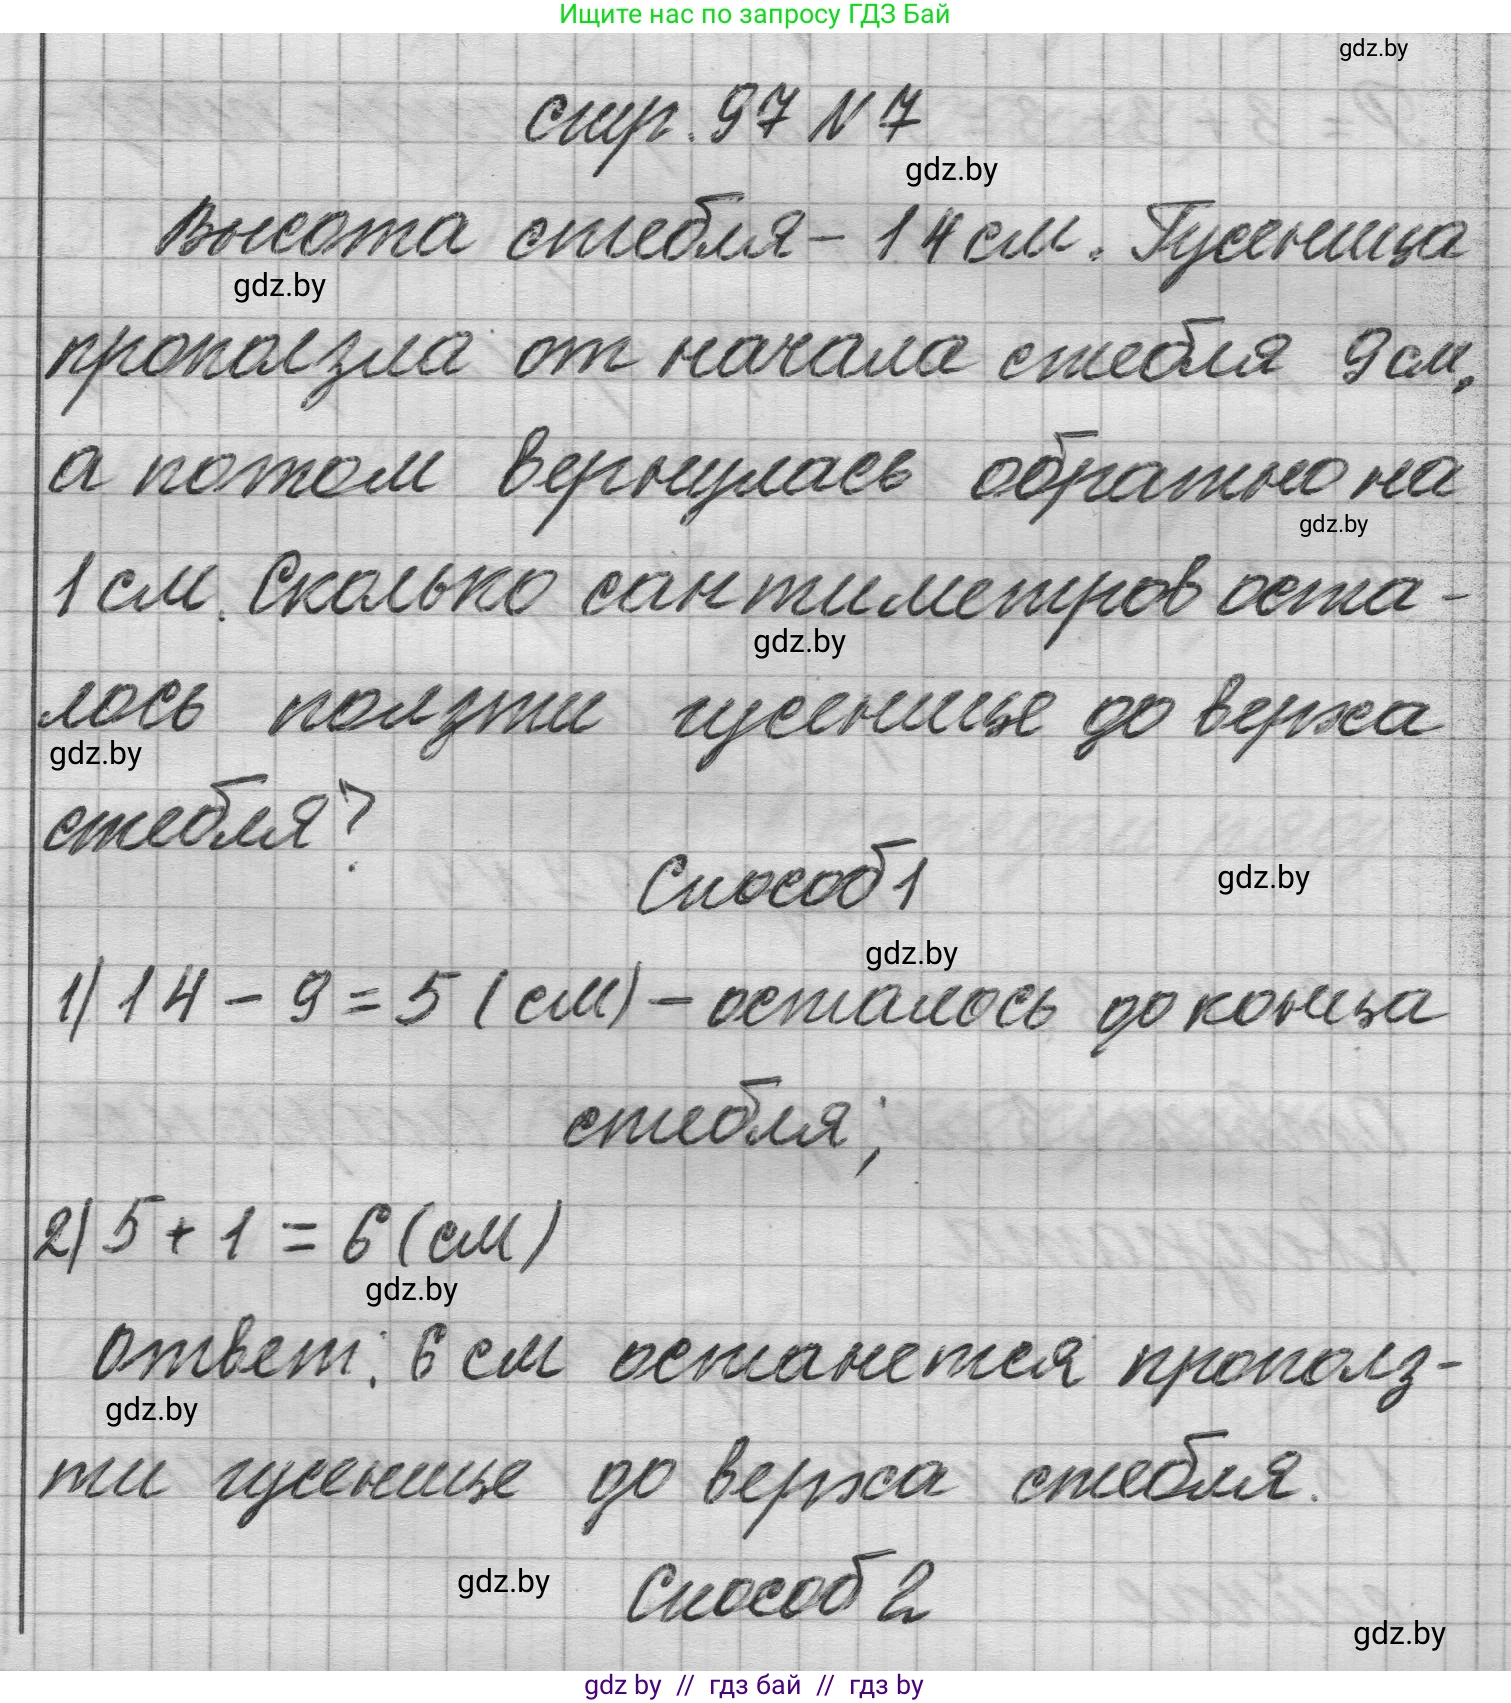 Ищите нас по запросу ГДЗ Бай
gdz.by
стр. 97 N 7
gdz.by
Высота стебля - 14 см. Гусеница
gdz.by
проползла от начала стебля 9 см,
а потом вернулась обратно на
gdz.by
1 см. Сколько сантиметров оста-
gdz.by
лось ползти гусенице до верха
gdz.by
стебля?
Способ 1
gdz.by
gdz.by
1) 14 - 9 = 5 (см) - осталось до конца
стебля;
2) 5 + 1 = 6 (см)
gdz.by
Ответ: 6 см останется прополз-
gdz.by
ти гусенице до верха стебля.
gdz.by
Способ 2
gdz.by
gdz by // гдз бай // гдз by